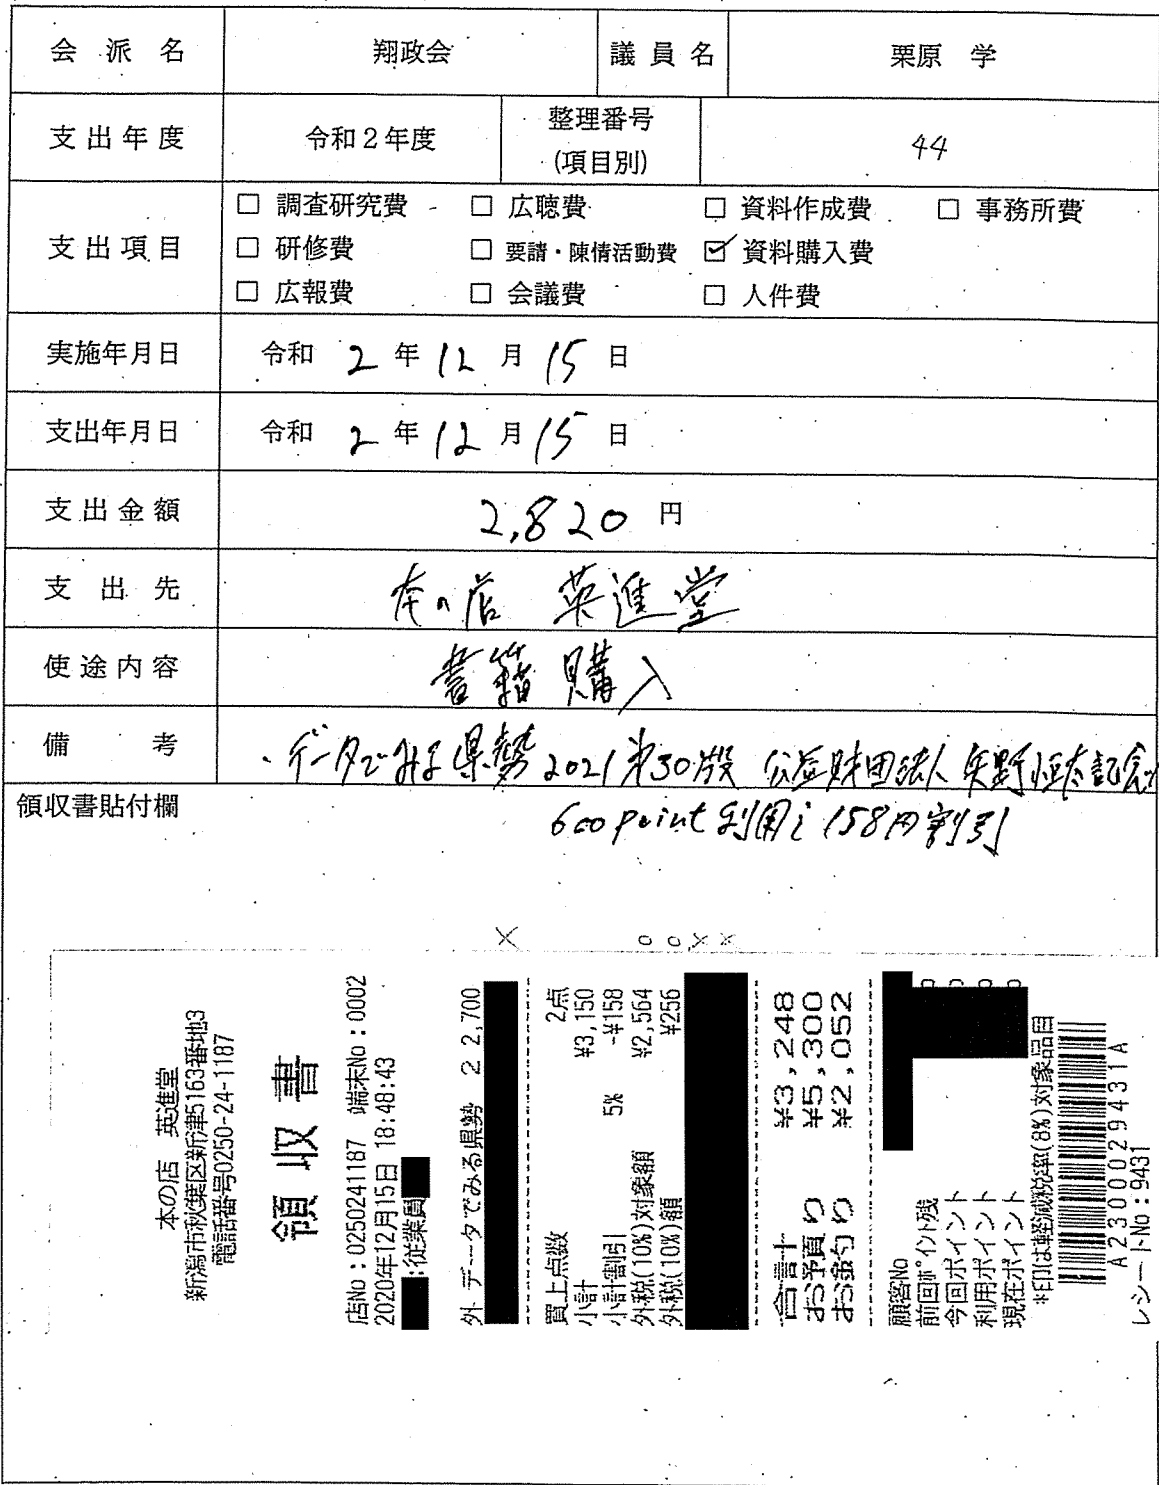 会派名 翔政会 議員名 栗原 学
支出年度 令和2年度 整理番号(項目別) 44
支出項目
□ 調査研究費 □ 広聴費 □ 資料作成費 □ 事務所費
□ 研修費 □ 要請・陳情活動費 ☑ 資料購入費
□ 広報費 □ 会議費 □ 人件費
実施年月日 令和 2 年 12 月 15 日
支出年月日 令和 2 年 12 月 15 日
支出金額 2,820 円
支出先 本の店 英進堂
使途内容 書籍購入
備考 ・データでみる県勢2021第30版 公益財団法人 矢野恒太記念
領収書貼付欄
600 point 利用し158円割引
本の店 英進堂
新潟市秋葉区新津5163番地3
電話番号0250-24-1187
領収書
店No:0250241187 端末No:0002
2020年12月15日 18:48:43
:従業員
外 データでみる県勢 2 2,700
買上点数 2点
小計 ¥3,150
小計割引 5% -¥158
外税(10%)対象額 ¥2,564
外税(10%)額 ¥256
合計 ¥3,248
お預り ¥5,300
お釣り ¥2,052
顧客No
前回ポイント残
今回ポイント
利用ポイント
現在ポイント
*印は軽減税率(8%)対象品目
A2300029431A
レシートNo:9431